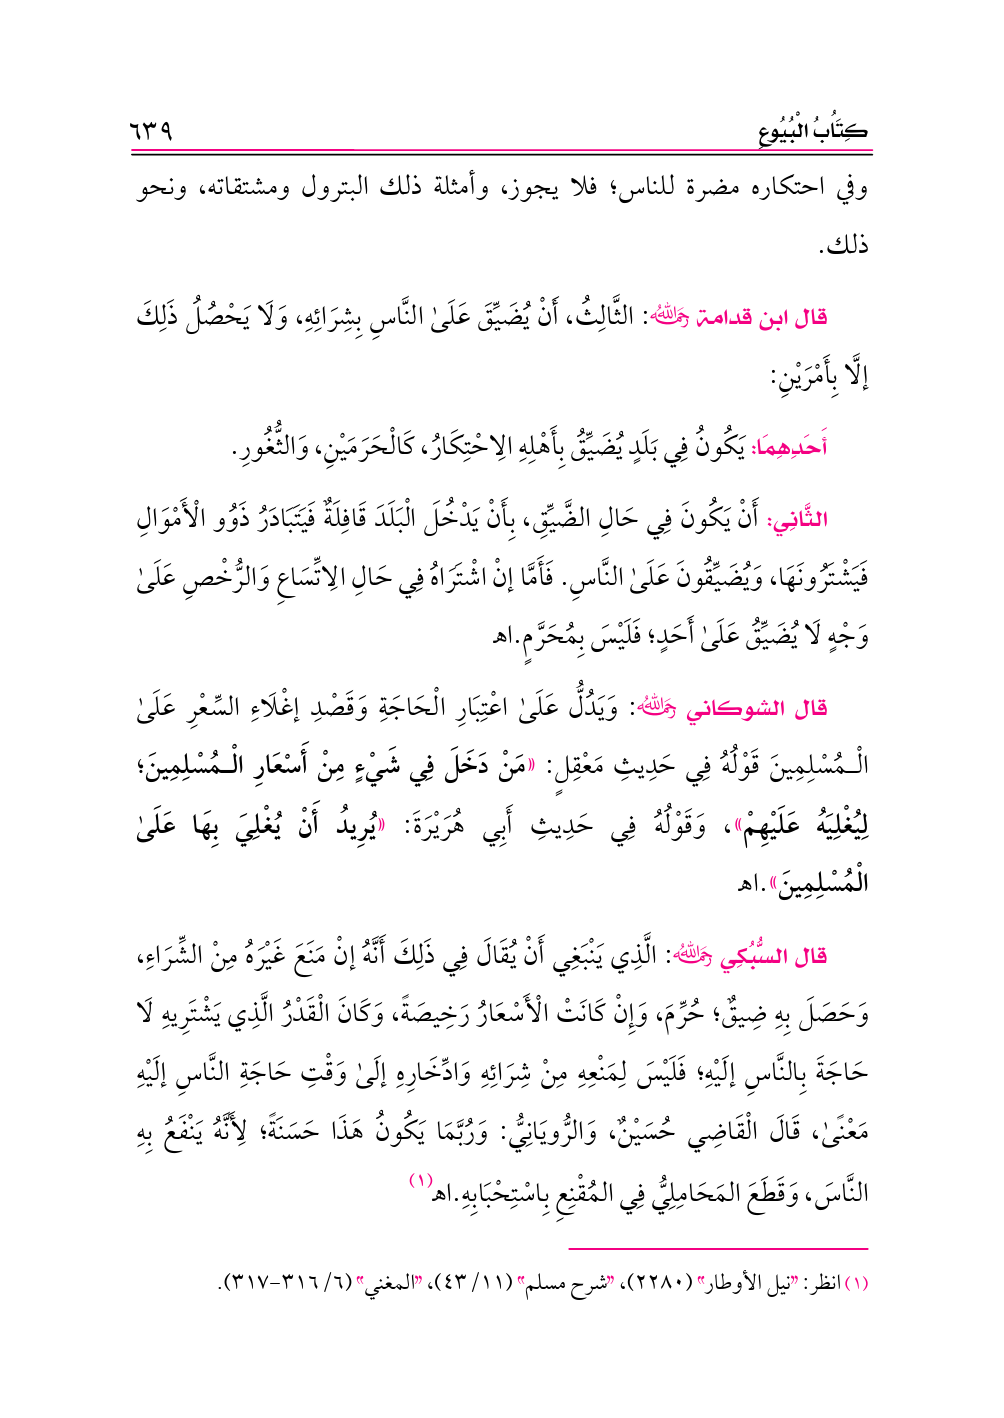 كِتَابُ الْبُيُوعِ ٦٣٩
وفي احتكاره مضرة للناس؛ فلا يجوز، وأمثلة ذلك البترول ومشتقاته، ونحو
ذلك.
قال ابن قدامة رحمه الله: الثَّالِثُ، أَنْ يُضَيِّقَ عَلَىٰ النَّاسِ بِشِرَائِهِ، وَلَا يَحْصُلُ ذَلِكَ
إلَّا بِأَمْرَيْنِ:
أَحَدِهِمَا: يَكُونُ فِي بَلَدٍ يُضَيِّقُ بِأَهْلِهِ الِاحْتِكَارُ، كَالْحَرَمَيْنِ، وَالثُّغُورِ.
الثَّانِي: أَنْ يَكُونَ فِي حَالِ الضَّيِّقِ، بِأَنْ يَدْخُلَ الْبَلَدَ قَافِلَةٌ فَيَتَبَادَرُ ذَوُو الْأَمْوَالِ
فَيَشْتَرُونَهَا، وَيُضَيِّقُونَ عَلَىٰ النَّاسِ. فَأَمَّا إنْ اشْتَرَاهُ فِي حَالِ الِاتِّسَاعِ وَالرُّخْصِ عَلَىٰ
وَجْهٍ لَا يُضَيِّقُ عَلَىٰ أَحَدٍ؛ فَلَيْسَ بِمُحَرَّمٍ.اهـ
قال الشوكاني رحمه الله: وَيَدُلُّ عَلَىٰ اعْتِبَارِ الْحَاجَةِ وَقَصْدِ إغْلَاءِ السِّعْرِ عَلَىٰ
الْـمُسْلِمِينَ قَوْلُهُ فِي حَدِيثِ مَعْقِلٍ: «مَنْ دَخَلَ فِي شَيْءٍ مِنْ أَسْعَارِ الْـمُسْلِمِينَ؛
لِيُغْلِيَهُ عَلَيْهِمْ»، وَقَوْلُهُ فِي حَدِيثِ أَبِي هُرَيْرَةَ: «يُرِيدُ أَنْ يُغْلِيَ بِهَا عَلَىٰ
الْمُسْلِمِينَ».اهـ
قال السُّبْكِي رحمه الله: الَّذِي يَنْبَغِي أَنْ يُقَالَ فِي ذَلِكَ أَنَّهُ إنْ مَنَعَ غَيْرَهُ مِنْ الشِّرَاءِ،
وَحَصَلَ بِهِ ضِيقٌ؛ حُرِّمَ، وَإِنْ كَانَتْ الْأَسْعَارُ رَخِيصَةً، وَكَانَ الْقَدْرُ الَّذِي يَشْتَرِيهِ لَا
حَاجَةَ بِالنَّاسِ إلَيْهِ؛ فَلَيْسَ لِمَنْعِهِ مِنْ شِرَائِهِ وَادِّخَارِهِ إلَىٰ وَقْتِ حَاجَةِ النَّاسِ إلَيْهِ
مَعْنًىٰ، قَالَ الْقَاضِي حُسَيْنٌ، وَالرُّويَانِيُّ: وَرُبَّمَا يَكُونُ هَذَا حَسَنَةً؛ لِأَنَّهُ يَنْفَعُ بِهِ
النَّاسَ، وَقَطَعَ المَحَامِلِيُّ فِي المُقْنِعِ بِاسْتِحْبَابِهِ.اهـ(١)
(١) انظر: "نيل الأوطار" (٢٢٨٠)، "شرح مسلم" (١١/ ٤٣)، "المغني" (٦/ ٣١٦-٣١٧).